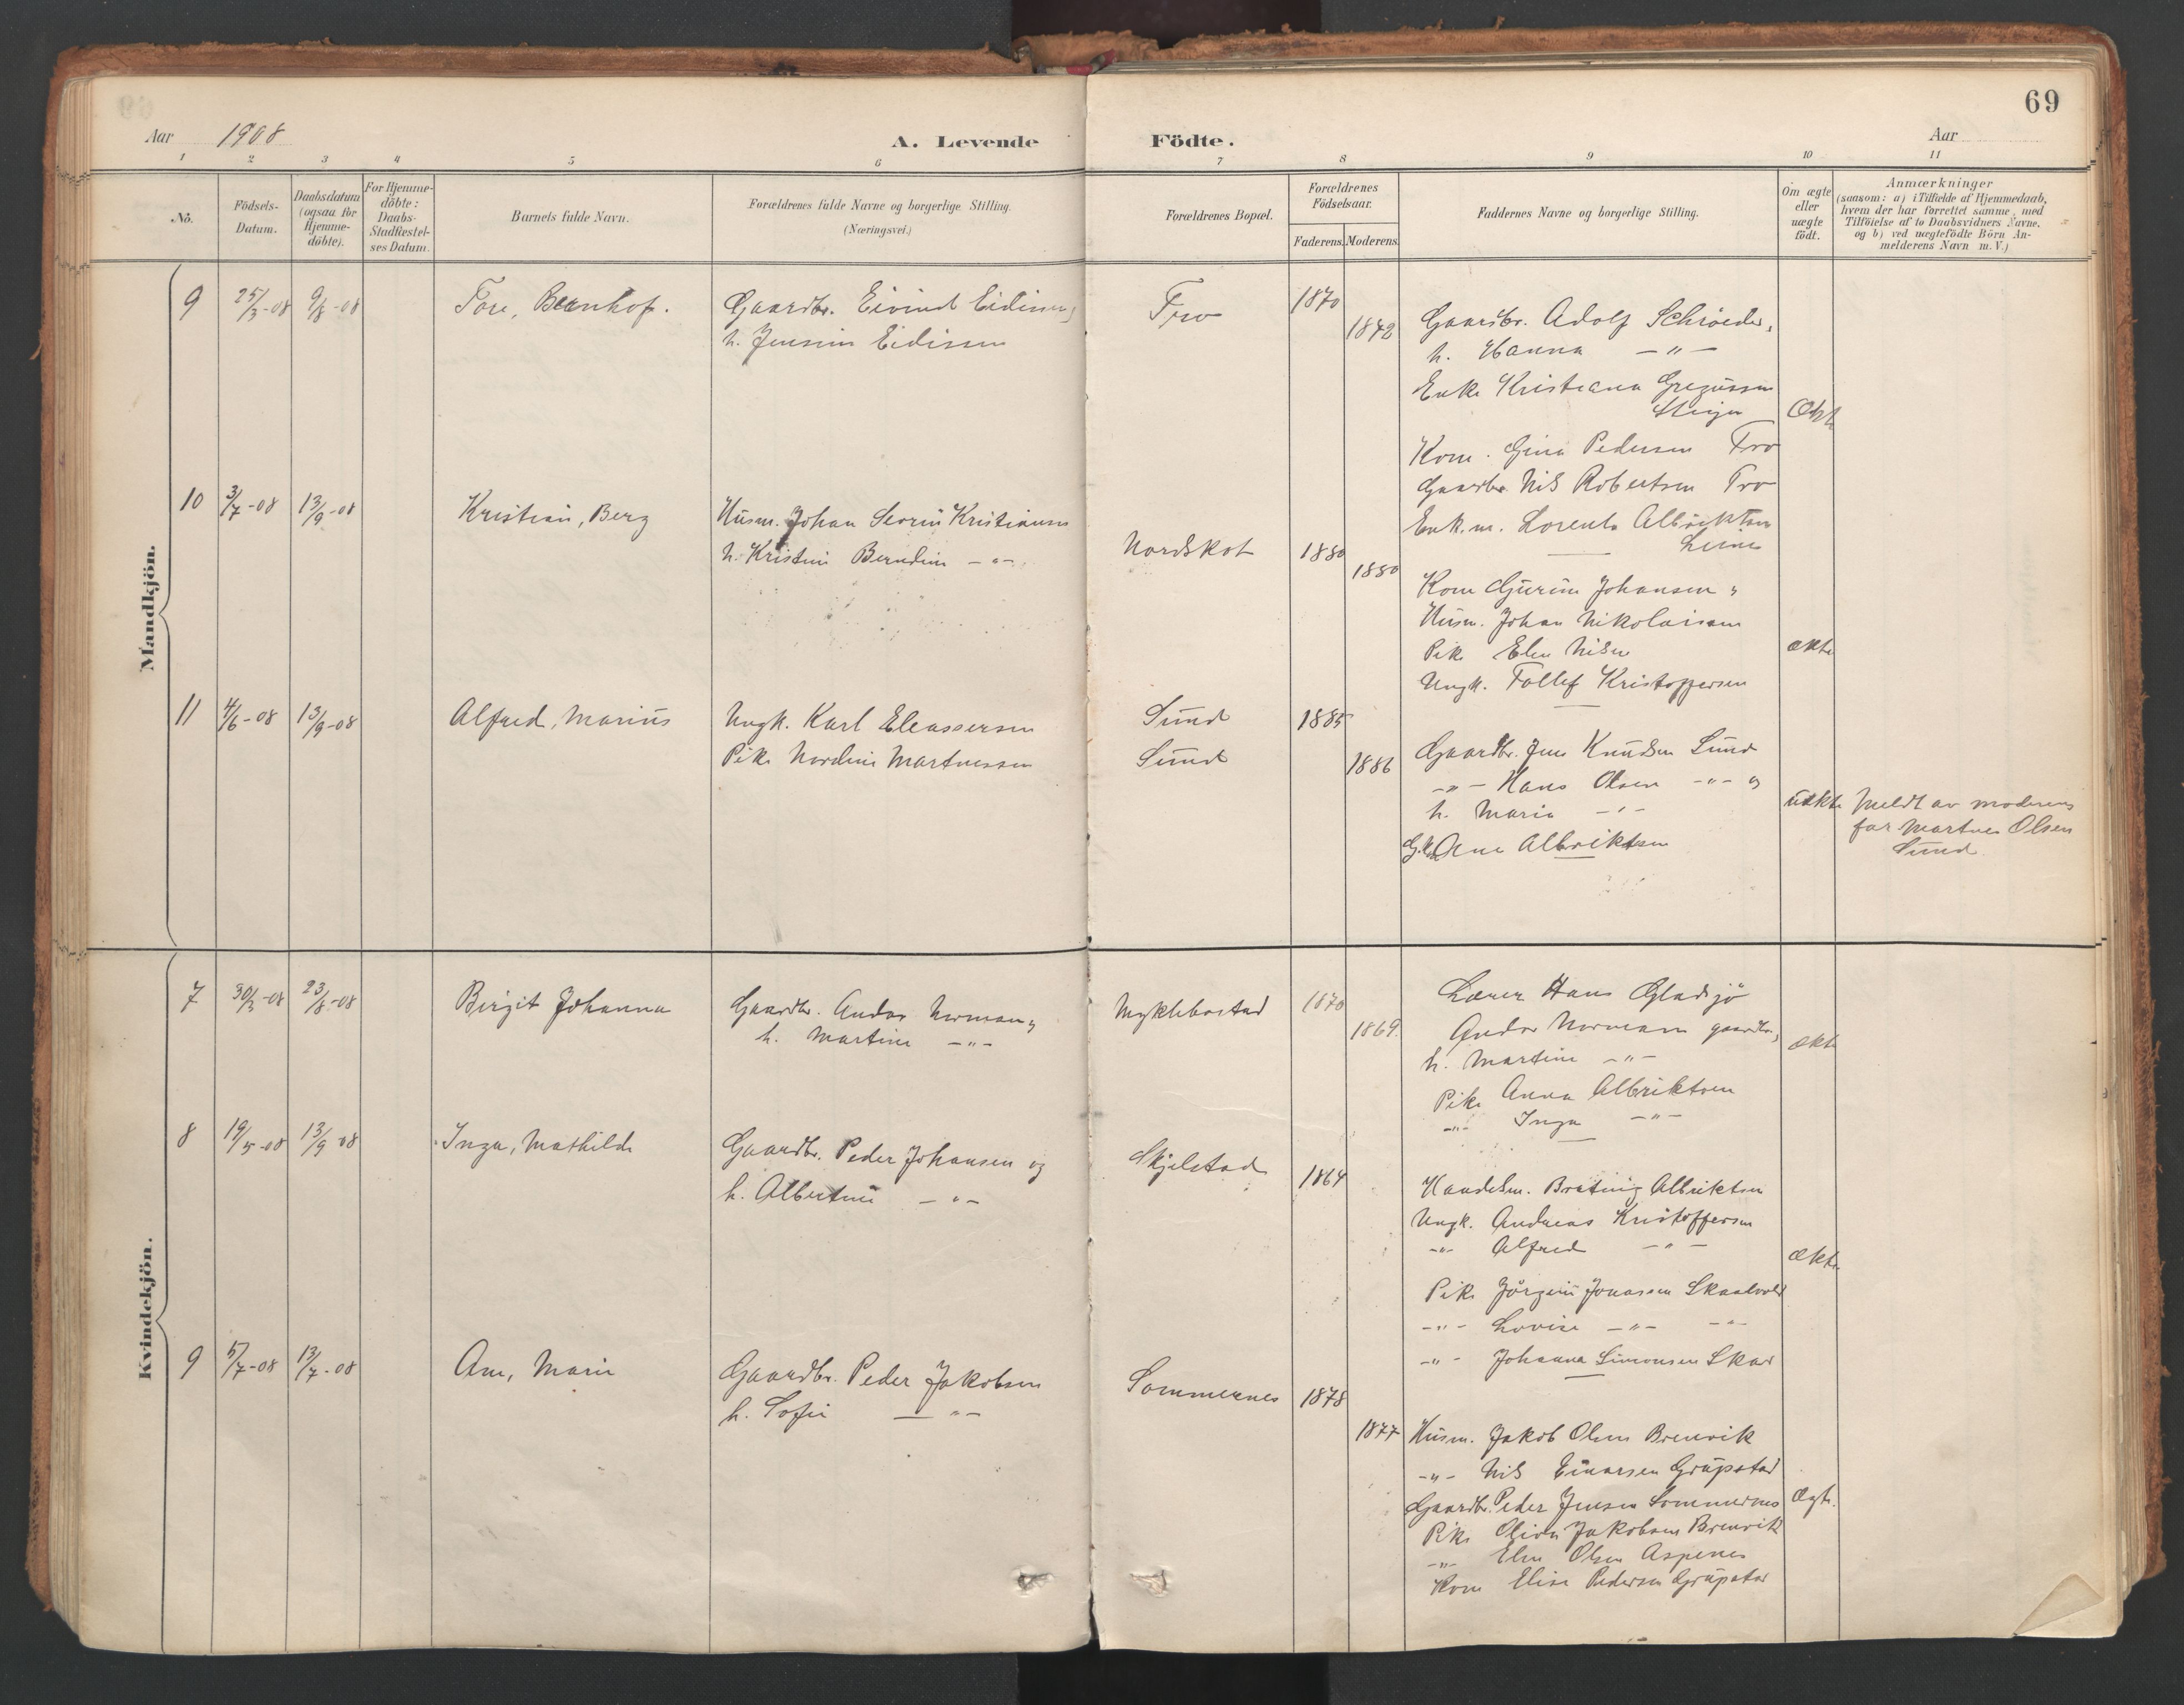 69
Aar 1908
A. Levende Födte.
Aar
1 2 3 4 5 6 7 8 9 10 11
No.
Födsels-Datum.
Daabsdatum (ogsaa for Hjemme-döbte).
For Hjemme-döbte: Daabs-Stadfæstel-ses Datum.
Barnets fulde Navn.
Forældrenes fulde Navne og borgerlige Stilling. (Næringsvei.)
Forældrenes Bopæl.
Forældrenes Födselsaar.
Faderens. Moderens.
Faddernes Navne og borgerlige Stilling.
Om ægte eller uægte födt.
Anmærkninger (saasom: a) i Tilfælde af Hjemmedaab, hvem der har forrettet samme, med Tilföielse af to Daabsvidners Navne, og b) ved uægtefödte Börn An-melderens Navn m. V.)
Mandkjön.
9 25/3-08 9/8-08 Tore, Bernhof.
Gaardbr. Eivind Eidissen,
h. Jensine Eidissen
Tro 1870
1872
Gaardbr. Adolf Schröeder,
h. Hanna -"-
Enke Kristiana Gregussen
Kone. Gina Pedersen Tro
Gaardbr. Nils Robertsen Tro
Enk.m. Lorents Albriktsen
10 3/7-08 13/9-08 Kristian, Berg
Husm. Johan Severin Kristiansen
h. Kristine Berndine -"-
Nordskot 1880
1880
Kone Gurine Johansen
Husm. Johan Nikolaisen
Pike Elen Nilsen
Ungk. Tollef Kristoffersen
ækte
11 4/6-08 13/9-08 Alfred, Marius
Ungk. Karl Eleassersen
Pike Nordine Martnessen
Sund 1885
Sund 1886
Gaardbr. Jens Knudsen Sund
-"- Hans Olsen -"- og
h. Marie -"-
Arne Albriktsen
uækte
Meldt av moderens
far Martnes Olsen
Sund
Kvindekjön.
7 30/3-08 23/8-08 Birgit Johanna
Gaardbr. Andor Norman,
h. Martine -"-
Myklebostad 1870
1869.
Lærer Hans Gladsjö
Andor Normann gaardbr.,
h. Martine -"-
Pike Anna Albriktsen
-"- Inga -"-
ækte
8 19/5-08 13/9 08 Inga, Mathilde
Gaardbr. Peder Johansen og
h. Albertine -"-
Skjelstad 1864
Handelsm. Brating Albriktsen
Ungk. Andreas Kristoffersen
-"- Alfred -"-
Pike Jörgine Jonassen Skaalvold
-"- Lovise -"- -"-
-"- Johanna Simonsen Skar
ækte.
9 5/7-08 13/7-08 Ane, Marie
Gaardbr. Peder Jakobsen
h. Sofie -"-
Sommernes 1878
1877
Husm. Jakob Olsen Brenvik
-"- Nils Einarsen Grüpstad
Gaardbr. Peder Jensen Sommernes
Pike Olivia Jakobsen Brenvik
-"- Elen Olsen Aspenes
Kone Elise Pedersen Grüpstad
Ægte.